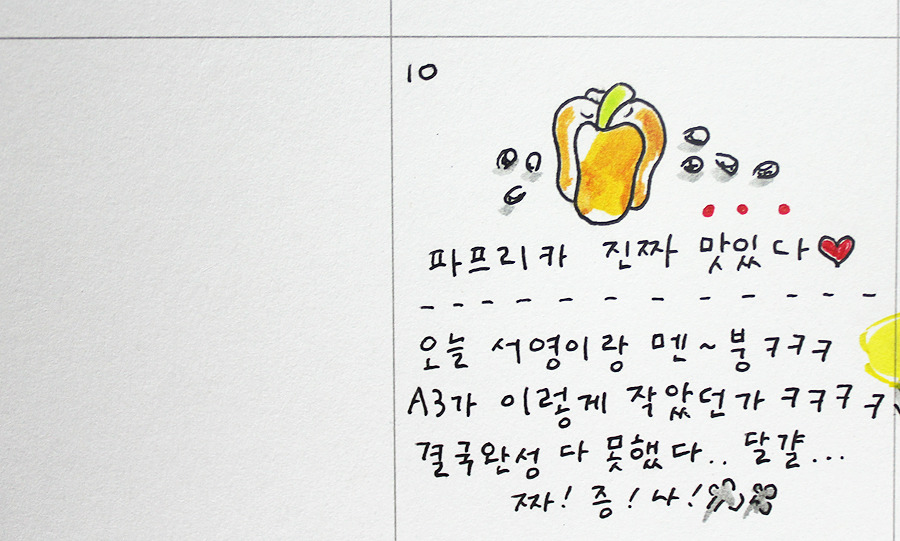 10
파프리카 진짜 맛있다
오늘 서영이랑 멘~붕ㅋㅋㅋ
A3가 이렇게 작았던가 ㅋㅋㅋㅋ
결국완성 다 못했다.. 달걀...
짜! 증! 나!